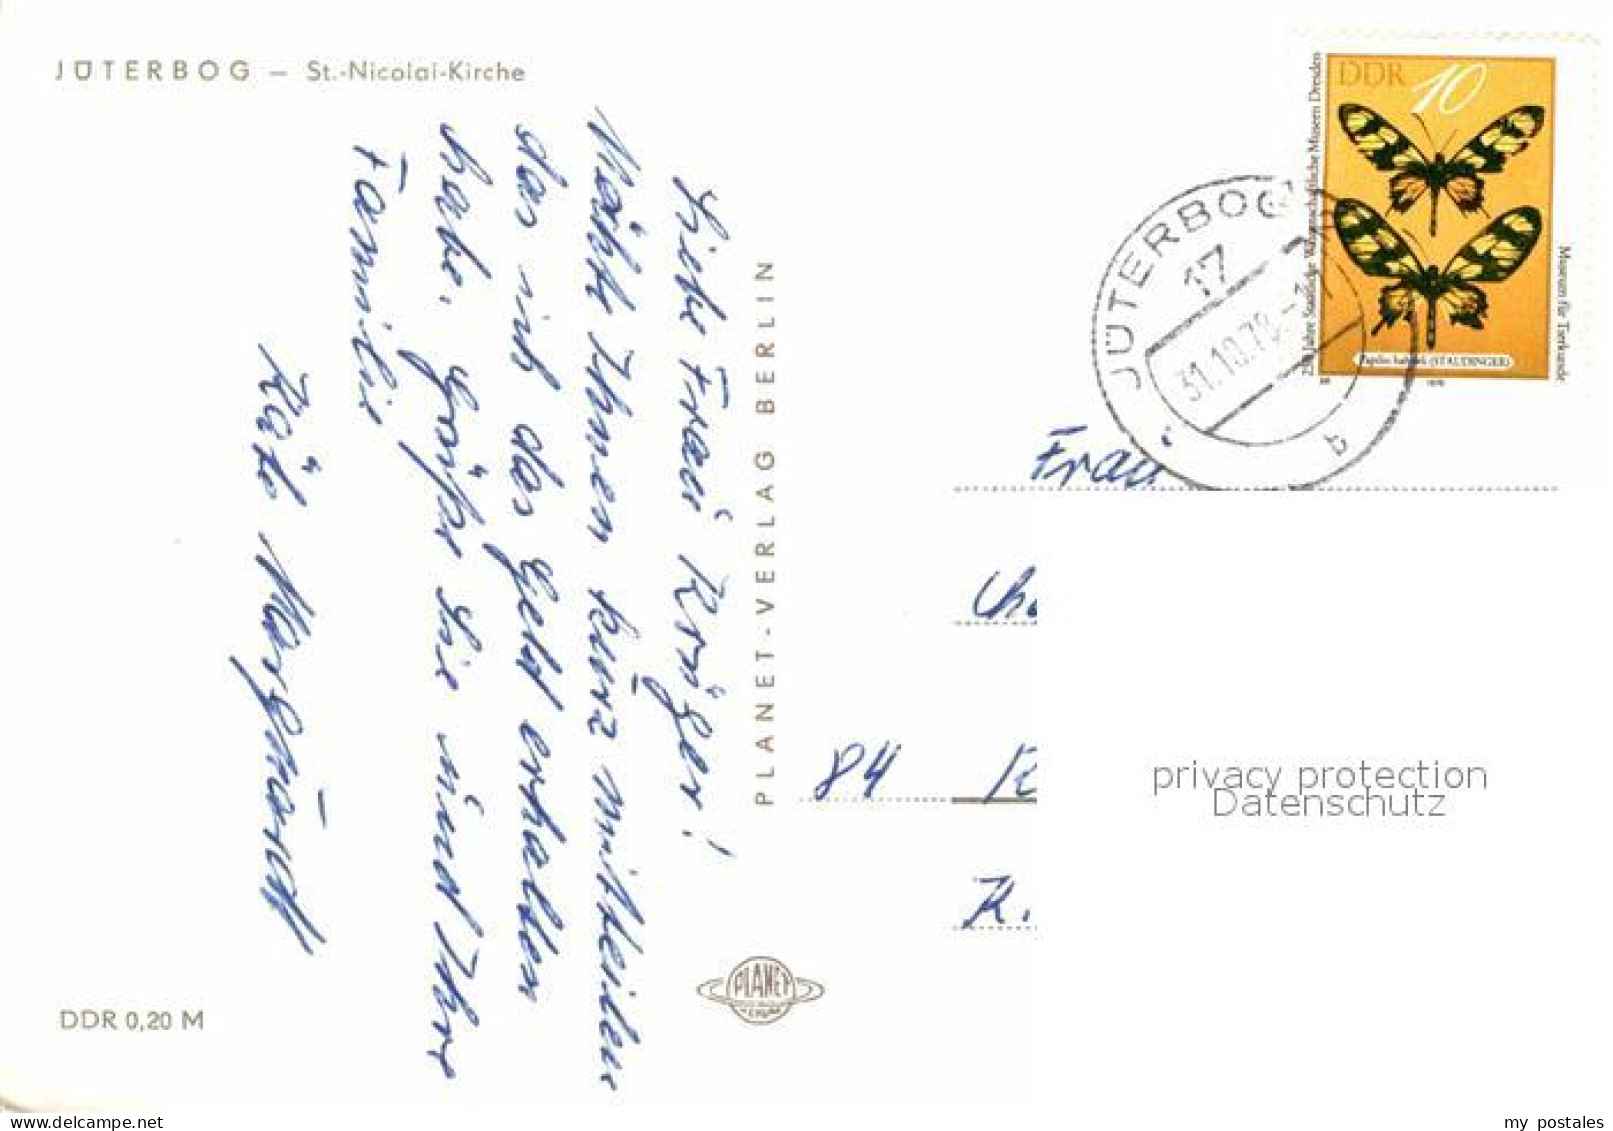 JÜTERBOG – St.-Nicolai-Kirche
Liebe Frau Krüger!
Möcht Ihnen kurz mitteilen
das ich das Geld erhalten
habe. Grüße Sie und Ihre
Familie
Käte
DDR 0,20 M
PLANET-VERLAG BERLIN
PLANET
VERLAG
DDR 10
250 Jahre Staatliche Wissenschaftliche Museen Dresden
Museum für Tierkunde
Papilio hahneli (STAUDINGER)
1978
JÜTERBOG
17
31.10.78
b
Frau
84
K.
privacy protection
Datenschutz
www.delcampe.net
my_postales